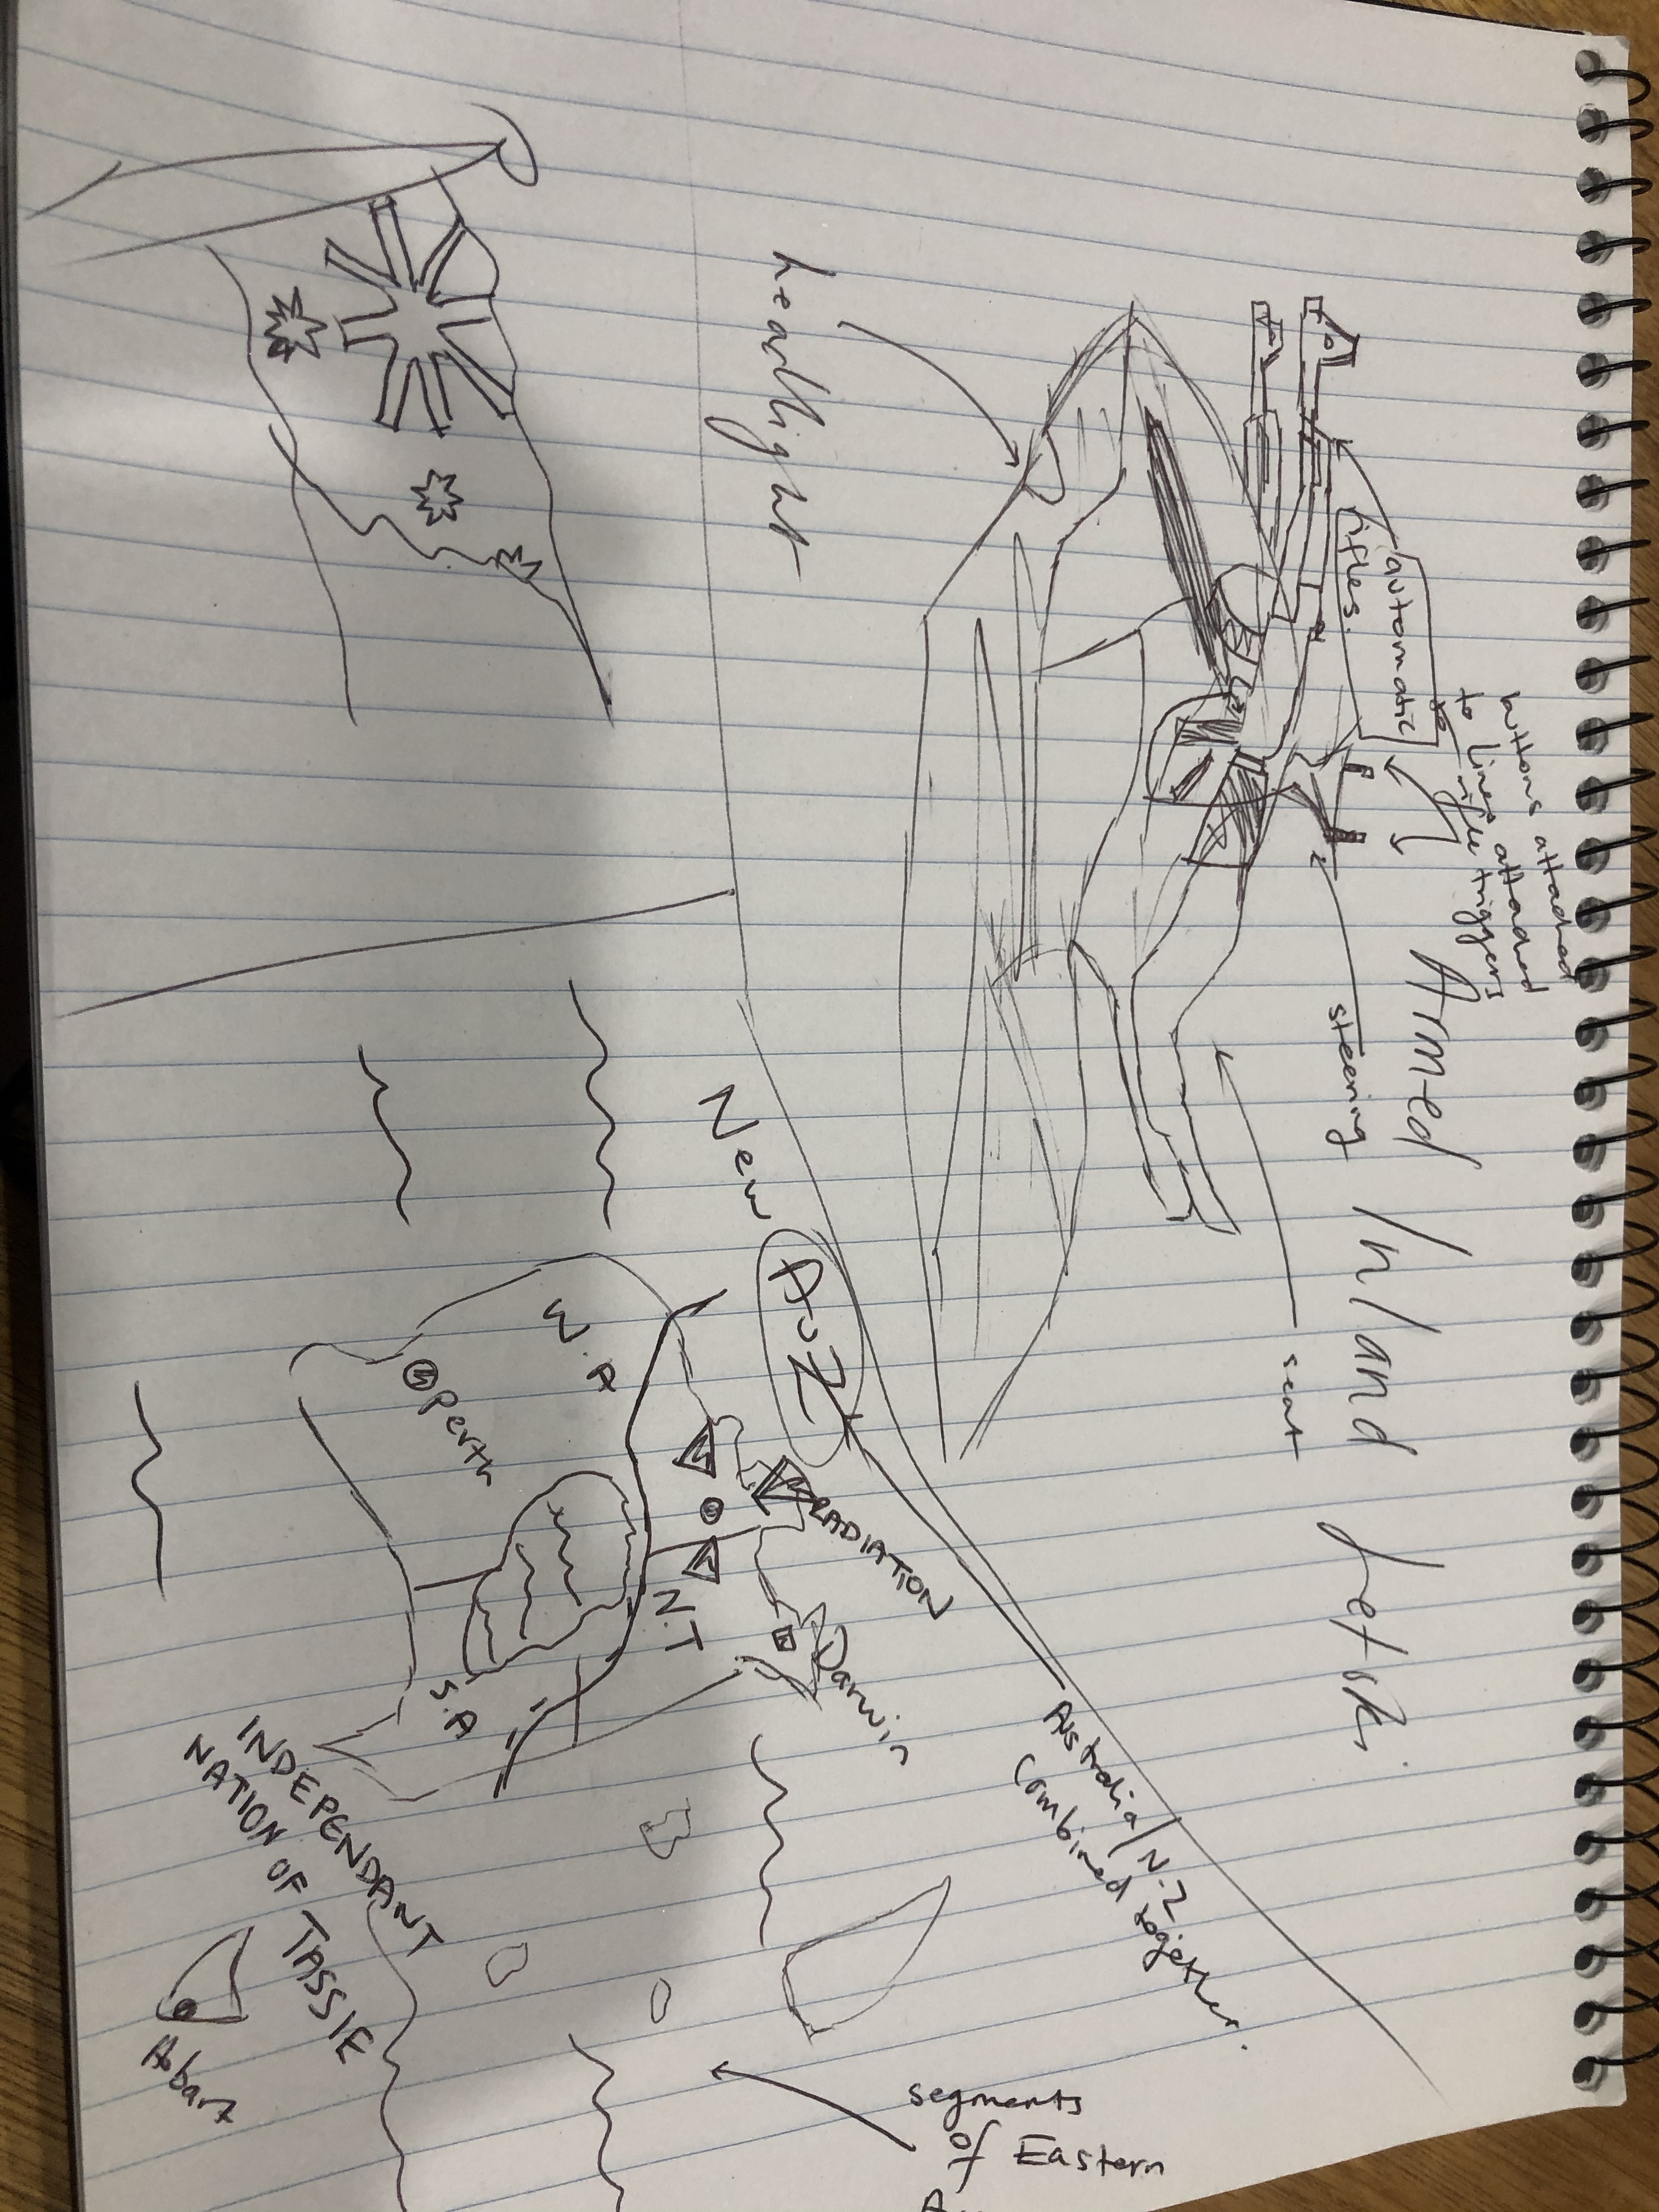 Armed Inland Jetski.
buttons attached
to lines attached
to rifle triggers
automatic
rifles.
steering
seat
headlight
New AUZ
Australia/N.Z
combined together.
RADIATION
Darwin
N.T
W.A
Perth
S.A
INDEPENDANT
NATION OF TASSIE
segments
of Eastern